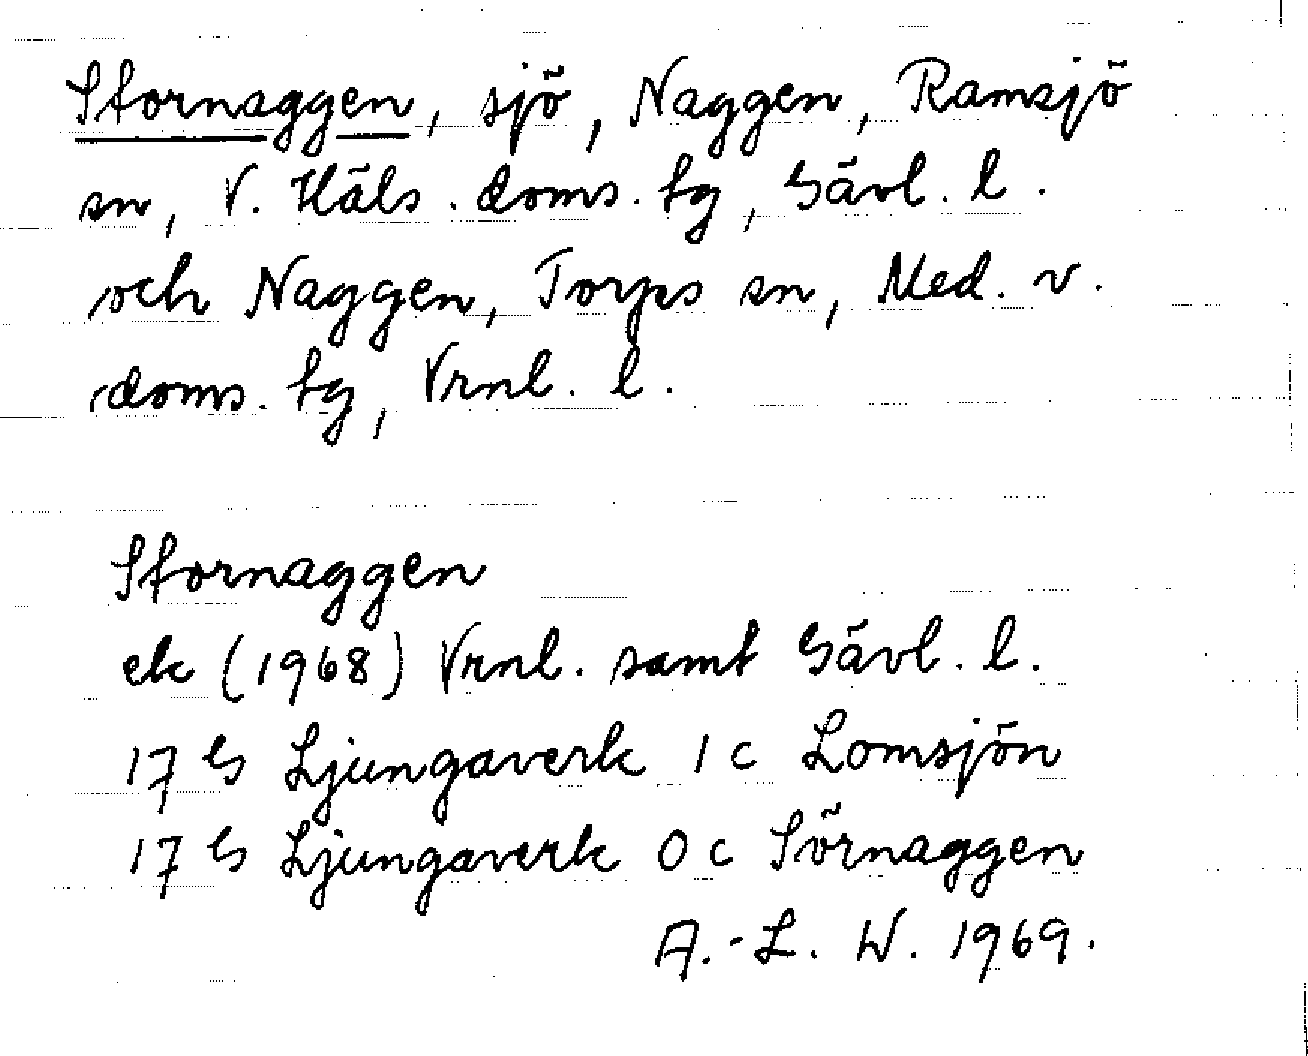 Stornaggen, sjö, Naggen, Ramsjö
sn, V. Häls. doms. tg, Gävl. l.
och Naggen, Torps sn, Med. v.
doms. tg, Vrnl. l.
Stornaggen
ek (1968) Vrnl. samt Gävl. l.
17 G Ljungaverk 1 c Lomsjön
17 G Ljungaverk 0 c Sörnaggen
A.-L. W. 1969.